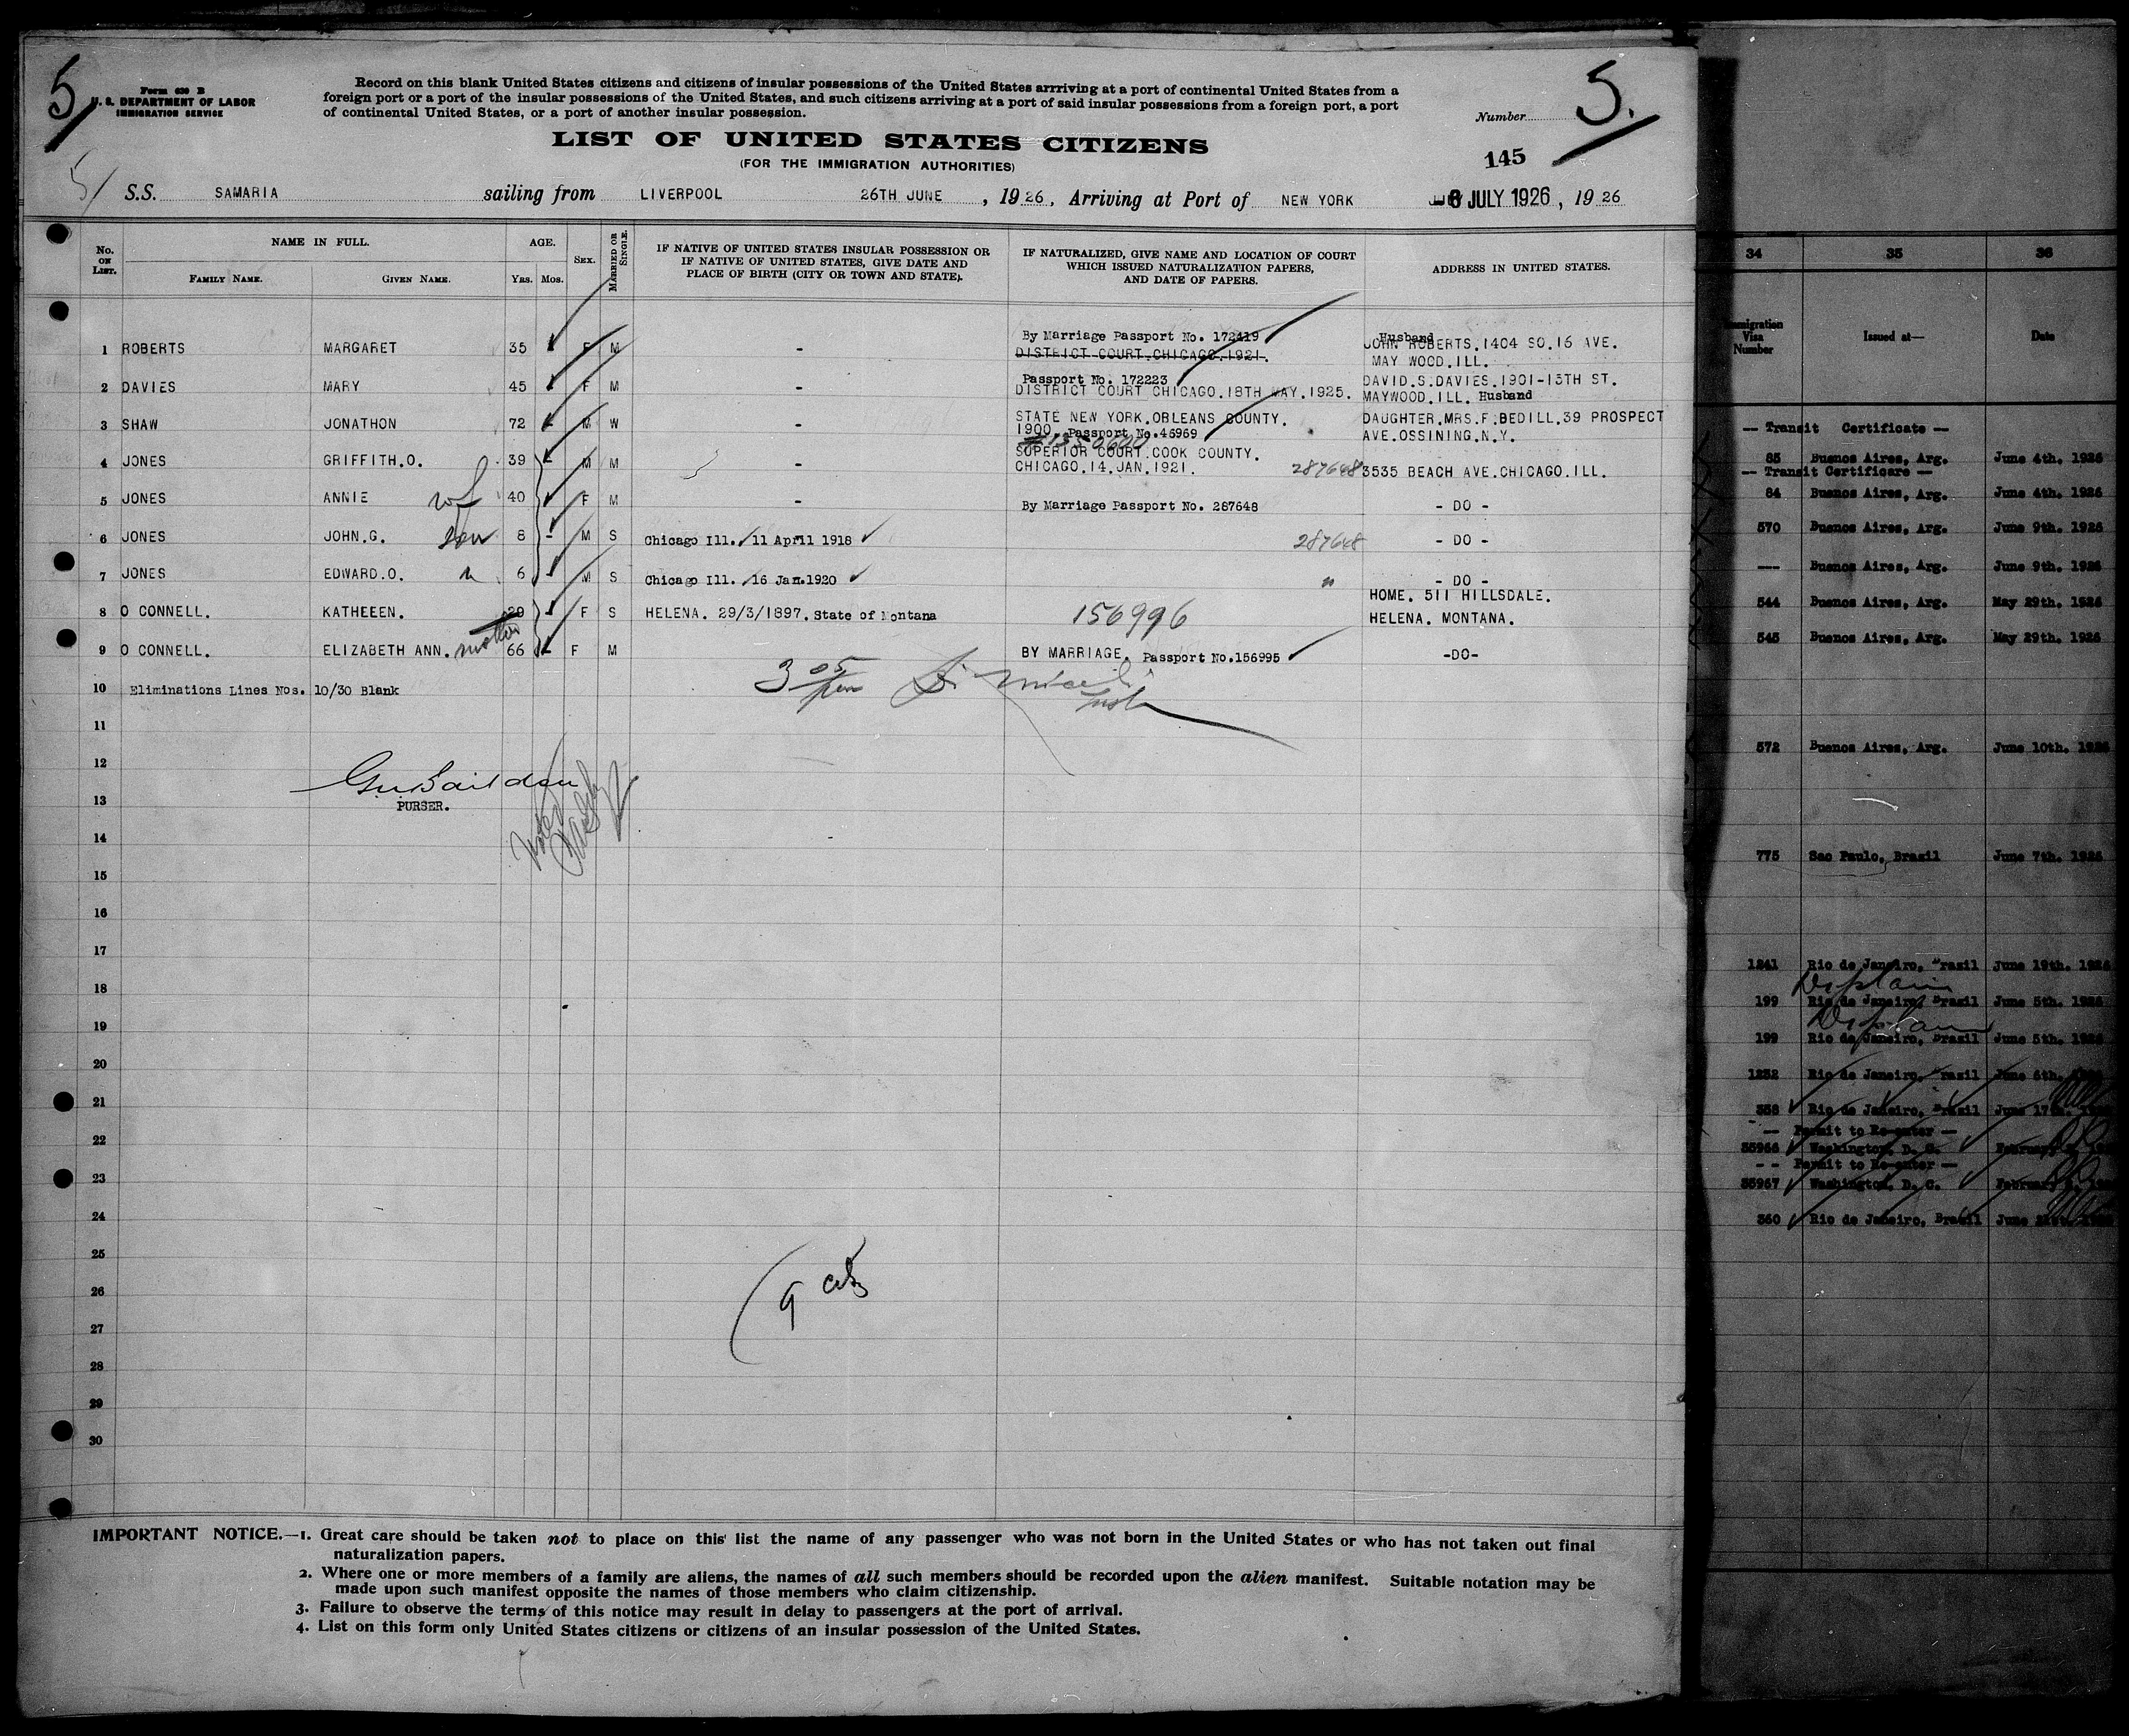 5
Form 630 B
U. S. DEPARTMENT OF LABOR
IMMIGRATION SERVICE
Record on this blank United States citizens and citizens of insular possessions of the United States arrriving at a port of continental United States from a
foreign port or a port of the insular possessions of the United States, and such citizens arriving at a port of said insular possessions from a foreign port, a port
of continental United States, or a port of another insular possession.
Number 5.
LIST OF UNITED STATES CITIZENS
(FOR THE IMMIGRATION AUTHORITIES)
145
5/
S.S. SAMARIA sailing from LIVERPOOL 26TH JUNE, 1926, Arriving at Port of NEW YORK 6 JULY 1926, 1926
No. ON LIST.
NAME IN FULL.
FAMILY NAME.
GIVEN NAME.
AGE.
YRS. MOS.
SEX.
MARRIED OR SINGLE.
IF NATIVE OF UNITED STATES INSULAR POSSESSION OR
IF NATIVE OF UNITED STATES, GIVE DATE AND
PLACE OF BIRTH (CITY OR TOWN AND STATE).
IF NATURALIZED, GIVE NAME AND LOCATION OF COURT
WHICH ISSUED NATURALIZATION PAPERS,
AND DATE OF PAPERS.
ADDRESS IN UNITED STATES.
By Marriage Passport No. 172419 Husband
1 ROBERTS MARGARET 35 - F M - DISTRICT COURT.CHICAGO.1921. JOHN ROBERTS.1404 SO.16 AVE.
MAY WOOD.ILL.
Passport No. 172223 DAVID.S.DAVIES.1901-13TH ST.
2 DAVIES MARY 45 - F M - DISTRICT COURT CHICAGO.18TH MAY.1925. MAYWOOD.ILL. Husband
STATE NEW YORK.ORLEANS COUNTY. DAUGHTER.MRS.F.BEDILL.39 PROSPECT
3 SHAW JONATHON 72 - M W - 1900. Passport No.46969 AVE.OSSINING.N.Y.
SUPERIOR COURT.COOK COUNTY.
4 JONES GRIFFITH.O. 39 - M M - CHICAGO.14.JAN.1921. 287648 3535 BEACH AVE.CHICAGO.ILL.
5 JONES ANNIE wf 40 F M - By Marriage Passport No. 287648 - DO -
6 JONES JOHN.G. son 8 - M S Chicago Ill. 11 April 1918 287648 - DO -
7 JONES EDWARD.O. " 6 - M S Chicago Ill. 16 Jan.1920 " - DO -
HOME. 511 HILLSDALE.
8 O CONNELL. KATHEEEN. 29 - F S HELENA. 29/3/1897. State of Montana 156996 HELENA. MONTANA.
9 O CONNELL. ELIZABETH ANN. mother 66 - F M BY MARRIAGE. Passport No.156995 -DO-
10 Eliminations Lines Nos. 10/30 Blank
11
12
13
PURSER.
14
15
16
17
18
19
20
21
22
23
24
25
26
27
28
29
30
IMPORTANT NOTICE.—1. Great care should be taken not to place on this list the name of any passenger who was not born in the United States or who has not taken out final
naturalization papers.
2. Where one or more members of a family are aliens, the names of all such members should be recorded upon the alien manifest. Suitable notation may be
made upon such manifest opposite the names of those members who claim citizenship.
3. Failure to observe the terms of this notice may result in delay to passengers at the port of arrival.
4. List on this form only United States citizens or citizens of an insular possession of the United States.
34 35 36
Immigration Visa Number
Issued at—
Date
— Transit Certificate —
85 Buenos Aires, Arg. June 4th. 1926
— Transit Certificare —
84 Buenos Aires, Arg. June 4th. 1926
570 Buenos Aires, Arg. June 9th. 1926
— Buenos Aires, Arg. June 9th. 1926
544 Buenos Aires, Arg. May 29th. 1926
545 Buenos Aires, Arg. May 29th. 1926
572 Buenos Aires, Arg. June 10th. 1926
775 Sao Paulo, Brasil June 7th. 1926
1241 Rio de Janeiro, Brasil June 19th. 1926
199 Rio de Janeiro, Brasil June 5th. 1926
199 Rio de Janeiro, Brasil June 5th. 1926
1232 Rio de Janeiro, Brasil June
358 Rio de Janeiro, Brasil June 17th.
— Permit to Re-enter —
35966 Washington, D. C.
-- Permit to Re-enter —
35967 Washington, D. C.
360 Rio de Janeiro, Brasil June